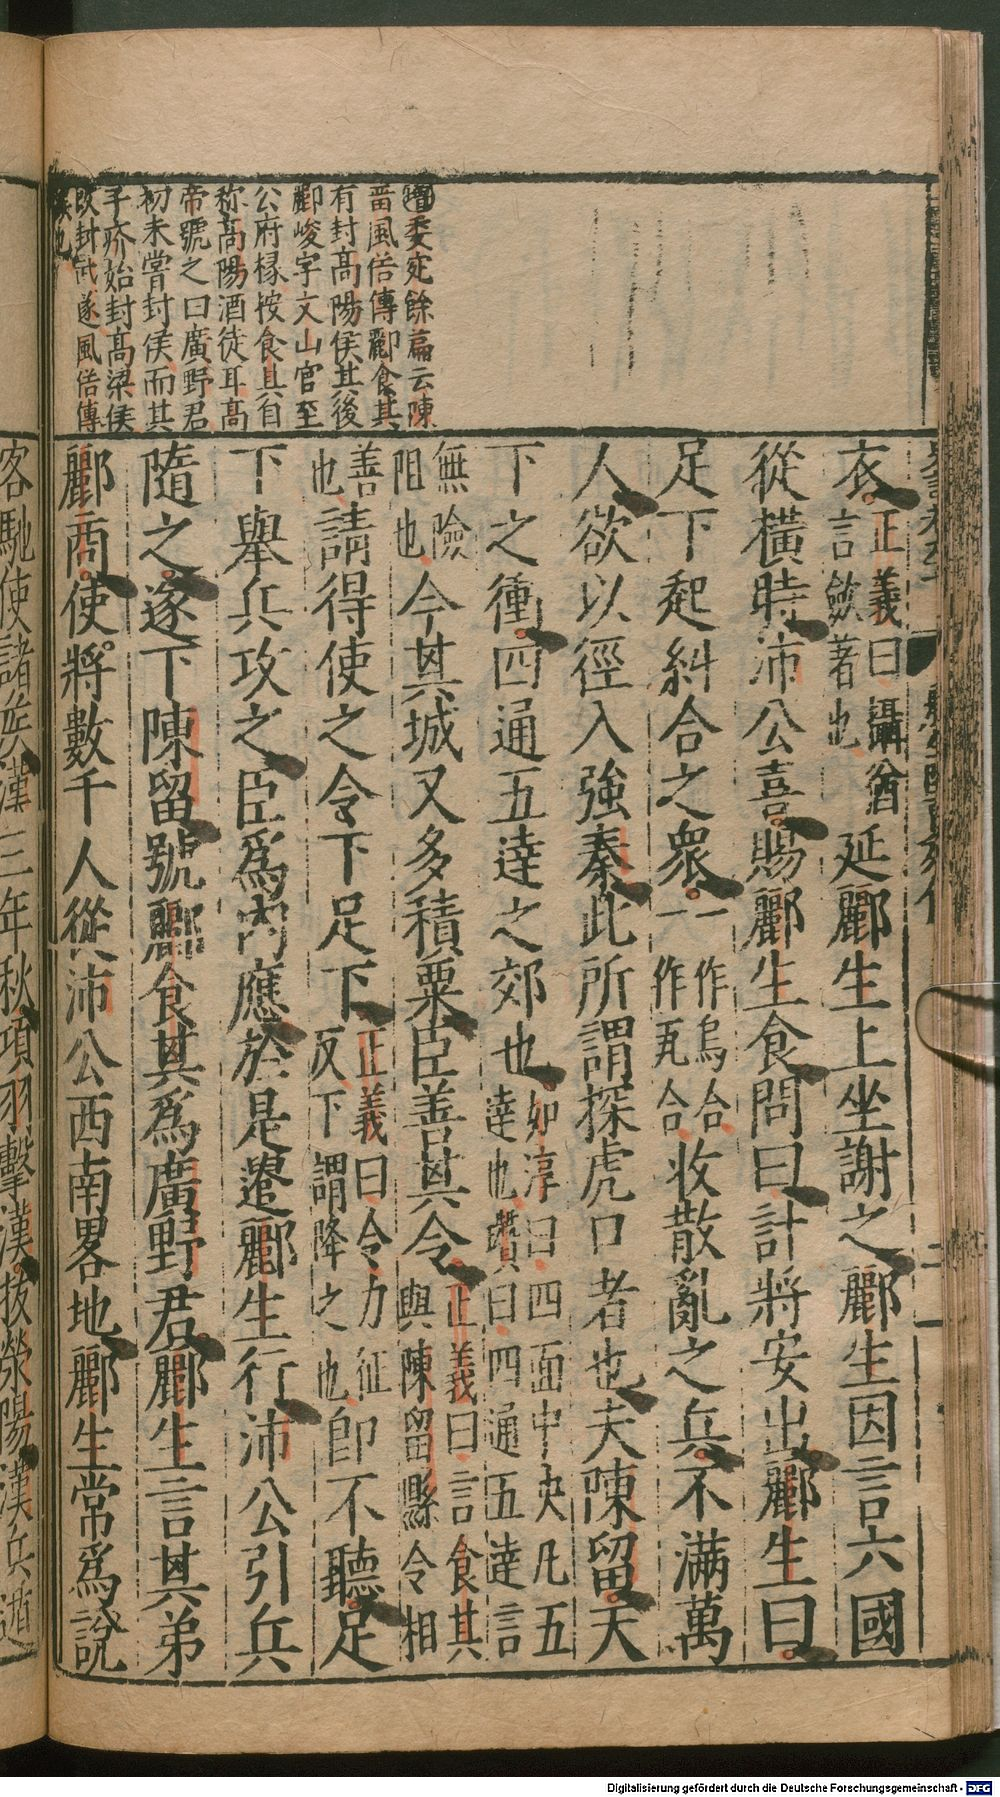 增委宛餘篇云陳
畱風俗傳酈食其
有封高陽侯其後
酈峻字文山官至
公府椽按食其自
称高陽酒徒耳高
帝號之曰廣野君
初未嘗封侯而其
子疥始封高梁侯
改封武遂風俗傳
誤也
衣正義曰攝猶言斂著也延酈生上坐謝之酈生因言六國
從橫時沛公喜賜酈生食問曰計將安出酈生曰
足下起糾合之衆一作烏合一作瓦合收散亂之兵不滿萬
人欲以徑入強秦此所謂探虎口者也夫陳留天
下之衝四通五達之郊也如淳曰四面中央凡五達也瓚曰四通五達言
無險阻也今其城又多積粟臣善其令正義曰言食其與陳留縣令相
善也請得使之令下足下正義曰令力征反下謂降之也卽不聽足
下舉兵攻之臣爲內應於是遣酈生行沛公引兵
隨之遂下陳留號酈食其爲廣野君酈生言其弟
酈商使將數千人從沛公西南畧地酈生常爲說
客馳使諸侯漢三年秋項羽擊漢拔滎陽漢兵遁
Digitalisierung gefördert durch die Deutsche Forschungsgemeinschaft - DFG